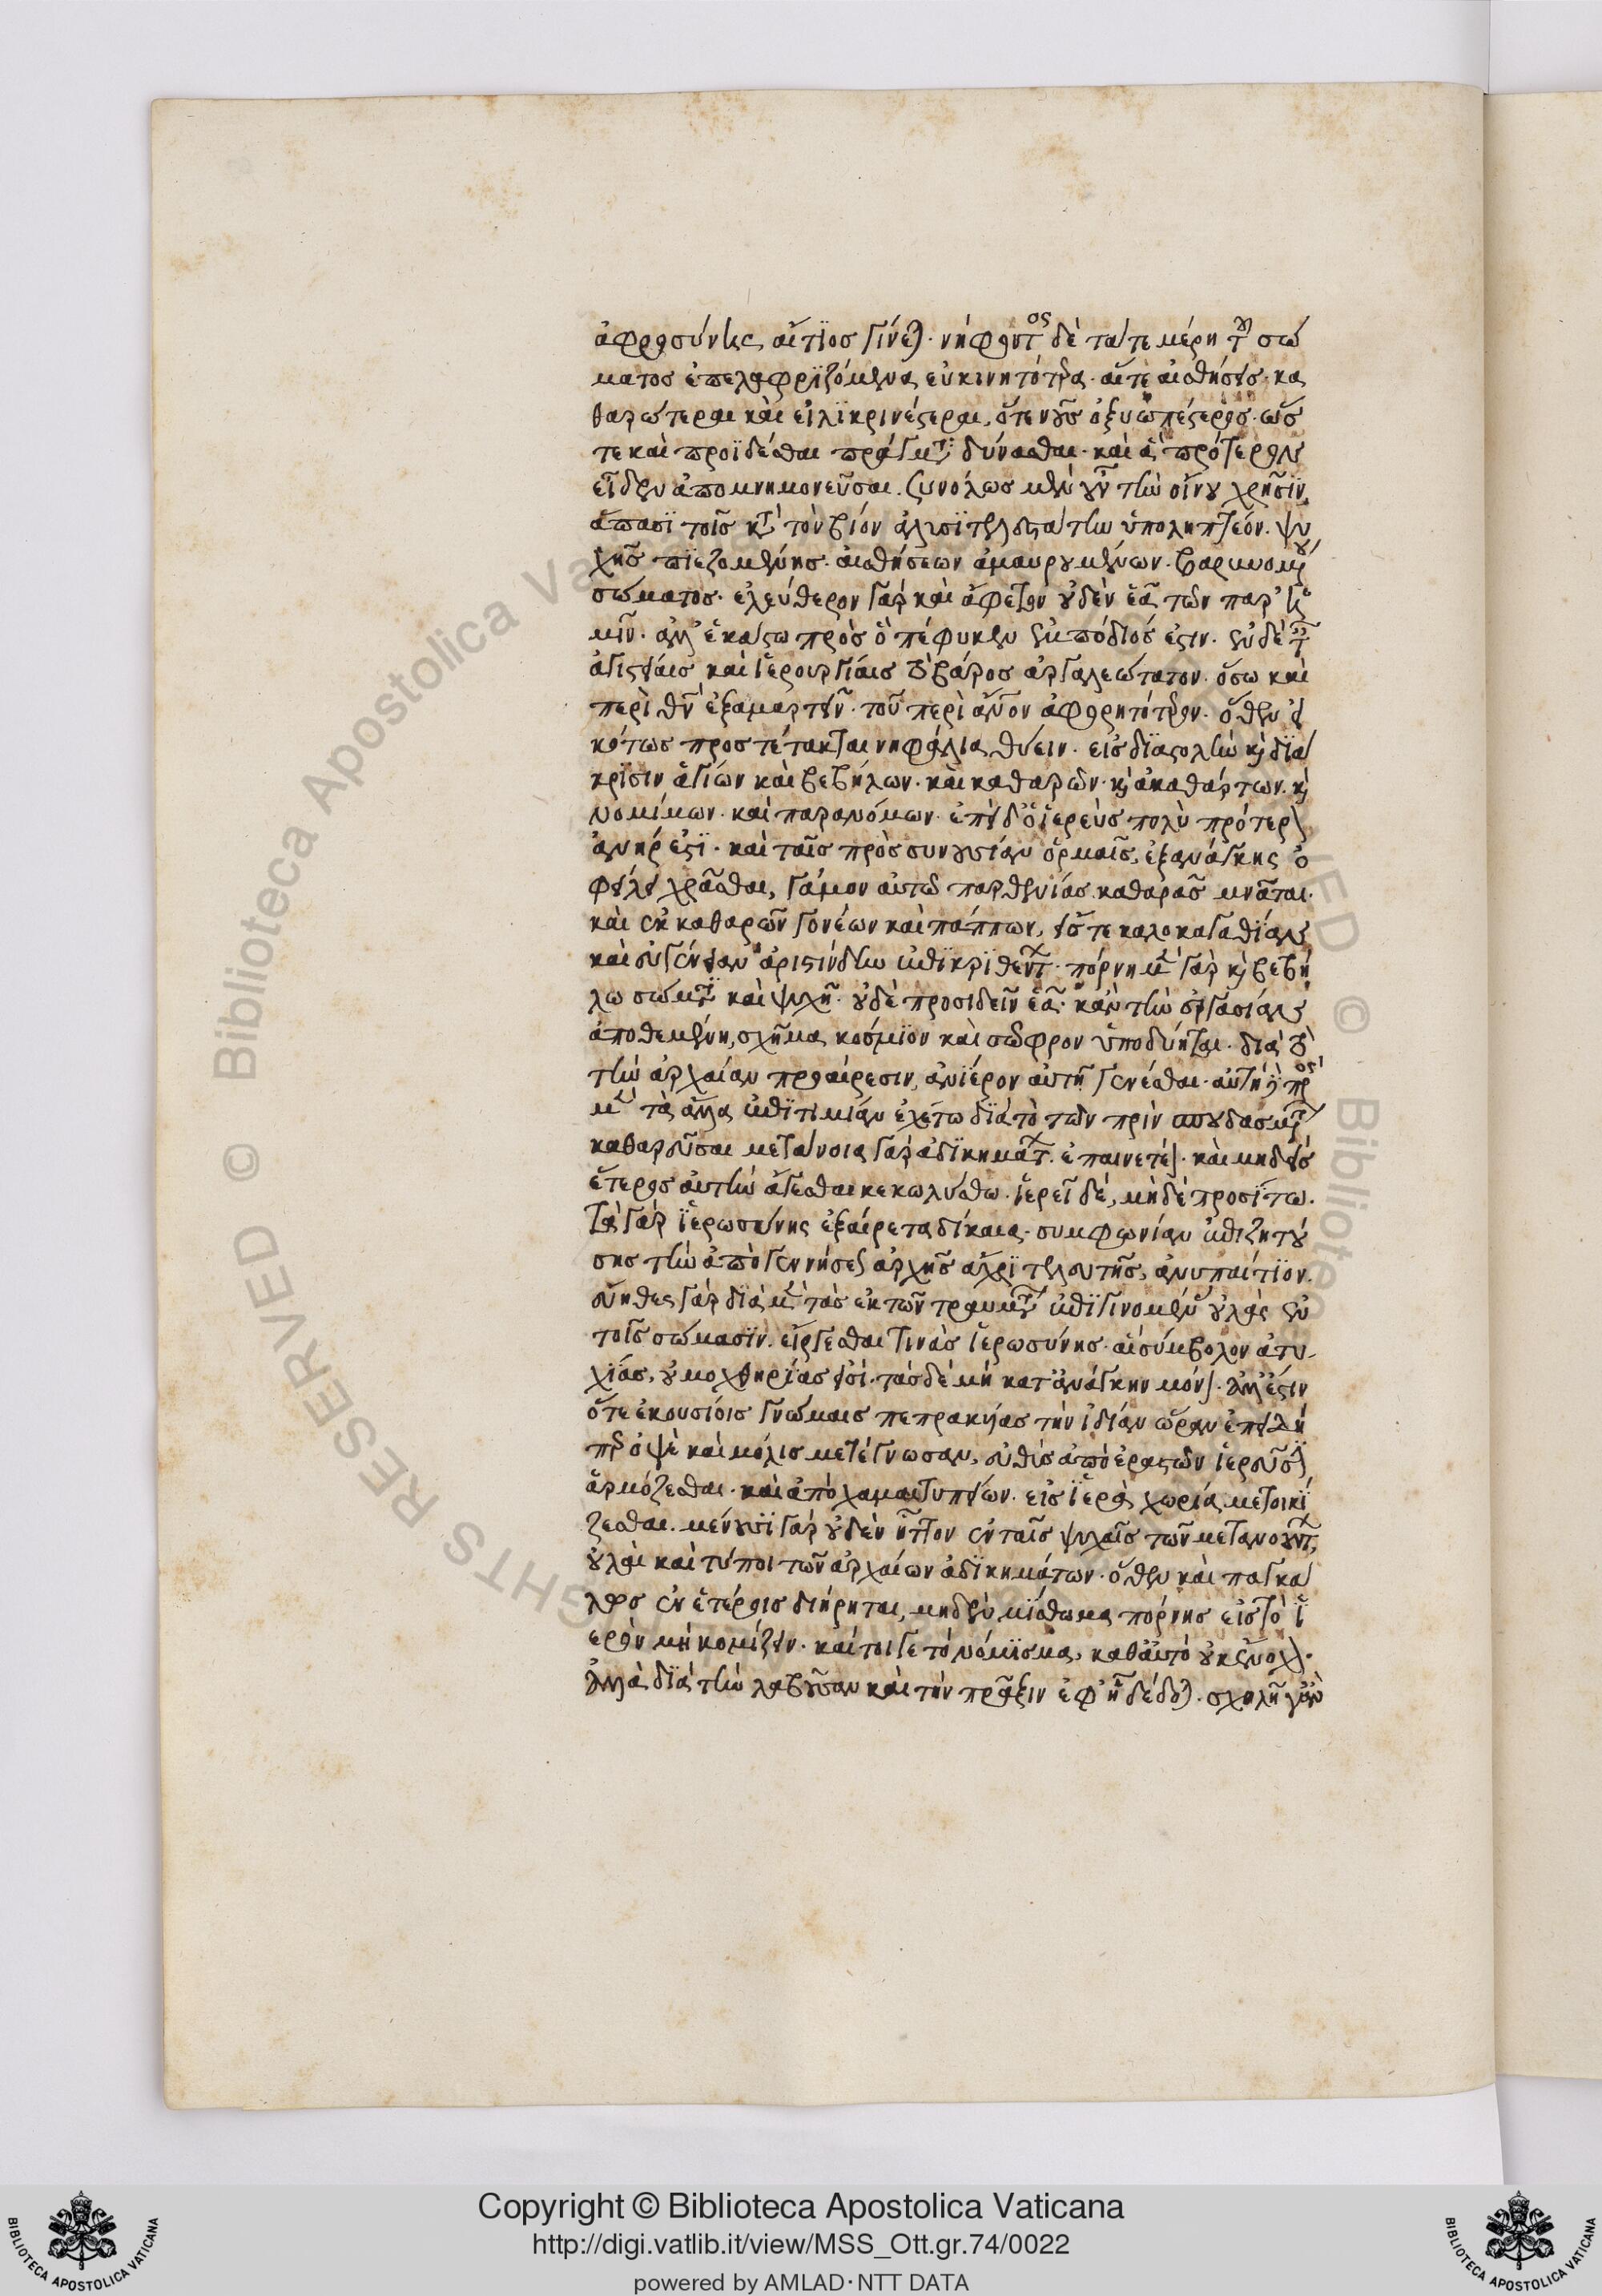 ἀφροσύνης αἴτιος γίνεται· νήφοντος δὲ τά τε μέρη τοῦ σώ
ματος ἐπελαφριζόμενα εὐκινητότερα· αἵ τε αἰσθήσεις· κα
θαρώτεραι καὶ εἰλικρινέστεραι, ὅ τε νοῦς ὀξυωπέστερος· ὥς
τε καὶ προϊδέσθαι πράγματα δύνασθαι· καὶ ἃ πρότερον
εἶδεν ἀπομνημονεῦσαι. συνόλως μὲν οὖν τὴν οἴνου χρῆσιν
ἅπασι τοῖς κατὰ τὸν βίον ἀλυσιτελεστάτην ὑποληπτέον. ψυ
χῆς πιεζομένης· αἰσθήσεων ἀμαυρουμένων· βαρυνομένου
σώματος· ἐλεύθερον γὰρ καὶ ἄφετον οὐδὲν ἐᾶ τῶν παρ' ἡ
μῖν· ἀλλ' ἑκάστω πρὸς ὃ πέφυκεν ἐμπόδιός ἐστιν. ἐν δὲ ταῖς
ἁγιστείαις καὶ ἱερουργίαις τὸ βάρος ἀργαλεώτατον· ὅσω καὶ
περὶ θεὸν ἐξαμαρτεῖν· τοῦ περὶ ἄνθρωπον ἀφορητότερον. ὅθεν εἰ
κότως προστέτακται νηφάλια θύειν· εἰς διαστολὴν καὶ διά
κρισιν ἁγίων καὶ βεβήλων· καὶ καθαρῶν· καὶ ἀκαθάρτων· καὶ
νομίμων· καὶ παρανόμων· ἐπεὶ δ' ὁ ἱερεὺς πολὺ πρότερον
ἀνήρ ἐστι· καὶ ταῖς πρὸς συνουσίαν ὁρμαῖς, ἐξ ἀνάγκης ὀ
φείλει χρᾶσθαι, γάμον αὐτῶ παρθενίας καθαρᾶς μνᾶται·
καὶ ἐκ καθαρῶν γονέων καὶ πάππων, εἴς τε καλοκαγαθίαν
καὶ εὐγένειαν ἀριστίνδην ἐπικριθέντων· πόρνη μὲν γὰρ καὶ βεβή
λω σῶμα καὶ ψυχὴν οὐδὲ προσιδεῖν ἐᾶ· κἂν τὴν ἐργασίαν
ἀποθεμένη, σχῆμα κόσμιον καὶ σῶφρον ὑποδύηται· διὰ τὸ
τὴν ἀρχαίαν προαίρεσιν, ἀνίερον αὐτῆ γενέσθαι· αὕτη πρὸς
μὲν τὰ ἄλλα ἐπιτιμίαν ἐχέτω διὰ τὸ τῶν πρὶν σπουδασμάτων
καθαρεῦσαι μετάνοια γὰρ ἀδικημάτων· ἐπαινετόν· καὶ μηδεὶς
ἕτερος αὐτὴν ἄγεσθαι κεκωλύσθω· ἱερεῖ δέ, μὴ δὲ προσίτω.
τὰ γὰρ ἱερωσύνης ἐξαίρετα δίκαια· συμφωνίαν ἐπιζητού
σης τὴν ἀπὸ γεννήσεως ἀρχῆς ἄχρι τελευτῆς, ἀνυπαίτιον.
εὔηθες γὰρ διὰ μὲν τὰς ἐκ τῶν τραυμάτων ἐπιγινομένας οὐλὰς ἐν
τοῖς σώμασιν· εἴργεσθαι τινὰς ἱερωσύνης· αἳ σύμβολον ἀτυ
χίας, οὐ μοχθηρίας εἰσί· τὰς δὲ μὴ κατ' ἀνάγκην μόνον· ἀλλ' ἔστιν
ὅτε ἑκουσίοις γνώμαις πεπρακυίας τὴν ἰδίαν ὥραν ἐπειδή
περ ὀψὲ καὶ μόλις μετέγνωσαν, εὐθὺς ἀπὸ ἐραστῶν ἱερεῦσιν
ἁρμόζεσθαι· καὶ ἀπὸ χαμαιτυπείων· εἰς ἱερὰ χωρία μετοικί
ζεσθαι. μένουσι γὰρ οὐδὲν ἧττον ἐν ταῖς ψυχαῖς τῶν μετανοούντων,
οὐλαὶ καὶ τύποι τῶν ἀρχαίων ἀδικημάτων· ὅθεν καὶ παγκά
λως ἐν ἑτέροις διήρηται, μηδὲν μίσθωμα πόρνης εἰς τὸ ἱ
ερὸν μὴ κομίζειν· καί τοι γε τὸ νόμισμα, καθ' αὑτὸ οὐκ ἔνοχον·
ἀλλὰ διὰ τὴν λαβοῦσαν καὶ τὴν πρᾶξιν ἐφ' ἧ δέδοται· σχολῆ γ' οὖν
Copyright © Biblioteca Apostolica Vaticana
http://digi.vatlib.it/view/MSS_Ott.gr.74/0022
powered by AMLAD·NTT DATA